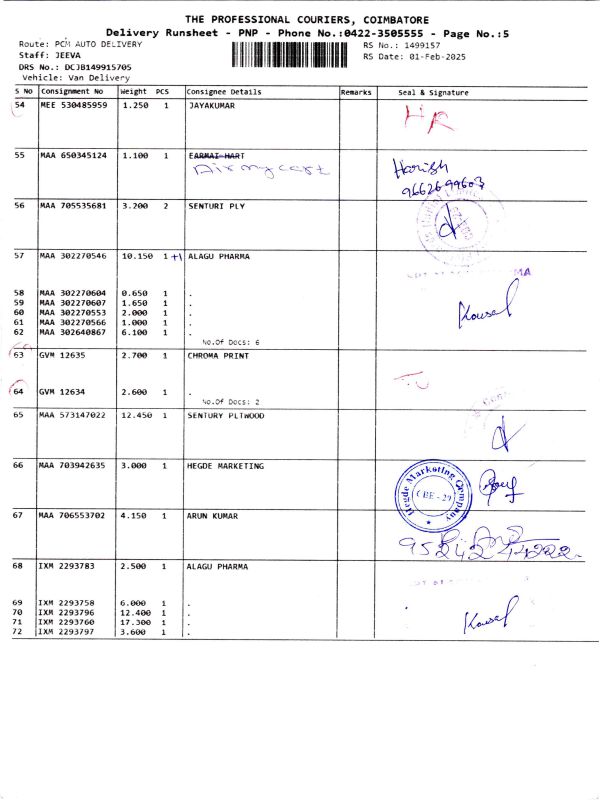 THE PROFESSIONAL COURIERS, COIMBATORE
Delivery Runsheet - PNP - Phone No.:0422-3505555 - Page No.:5
Route: PCM AUTO DELIVERY RS No.: 1499157
Staff: JEEVA RS Date: 01-Feb-2025
DRS No.: DCJB149915705
Vehicle: Van Delivery
S No Consignment No Weight PCS Consignee Details Remarks Seal & Signature
54 MEE 530485959 1.250 1 JAYAKUMAR HR
55 MAA 650345124 1.100 1 EARMAI HART Harish
Air my cart 9662699603
56 MAA 705535681 3.200 2 SENTURI PLY
57 MAA 302270546 10.150 1 +1 ALAGU PHARMA
58 MAA 302270604 0.650 1 .
59 MAA 302270607 1.650 1 .
60 MAA 302270553 2.000 1 . Kousal
61 MAA 302270566 1.000 1 .
62 MAA 302640867 6.100 1 .
No.Of Docs: 6
63 GVM 12635 2.700 1 CHROMA PRINT
64 GVM 12634 2.600 1 .
No.Of Docs: 2
65 MAA 573147022 12.450 1 SENTURY PLTWOOD
66 MAA 703942635 3.000 1 HEGDE MARKETING Hegde Marketing Company CBE - 29
67 MAA 706553702 4.150 1 ARUN KUMAR
68 IXM 2293783 2.500 1 ALAGU PHARMA
69 IXM 2293758 6.000 1 .
70 IXM 2293796 12.400 1 .
71 IXM 2293760 17.300 1 . Kousal
72 IXM 2293797 3.600 1 .